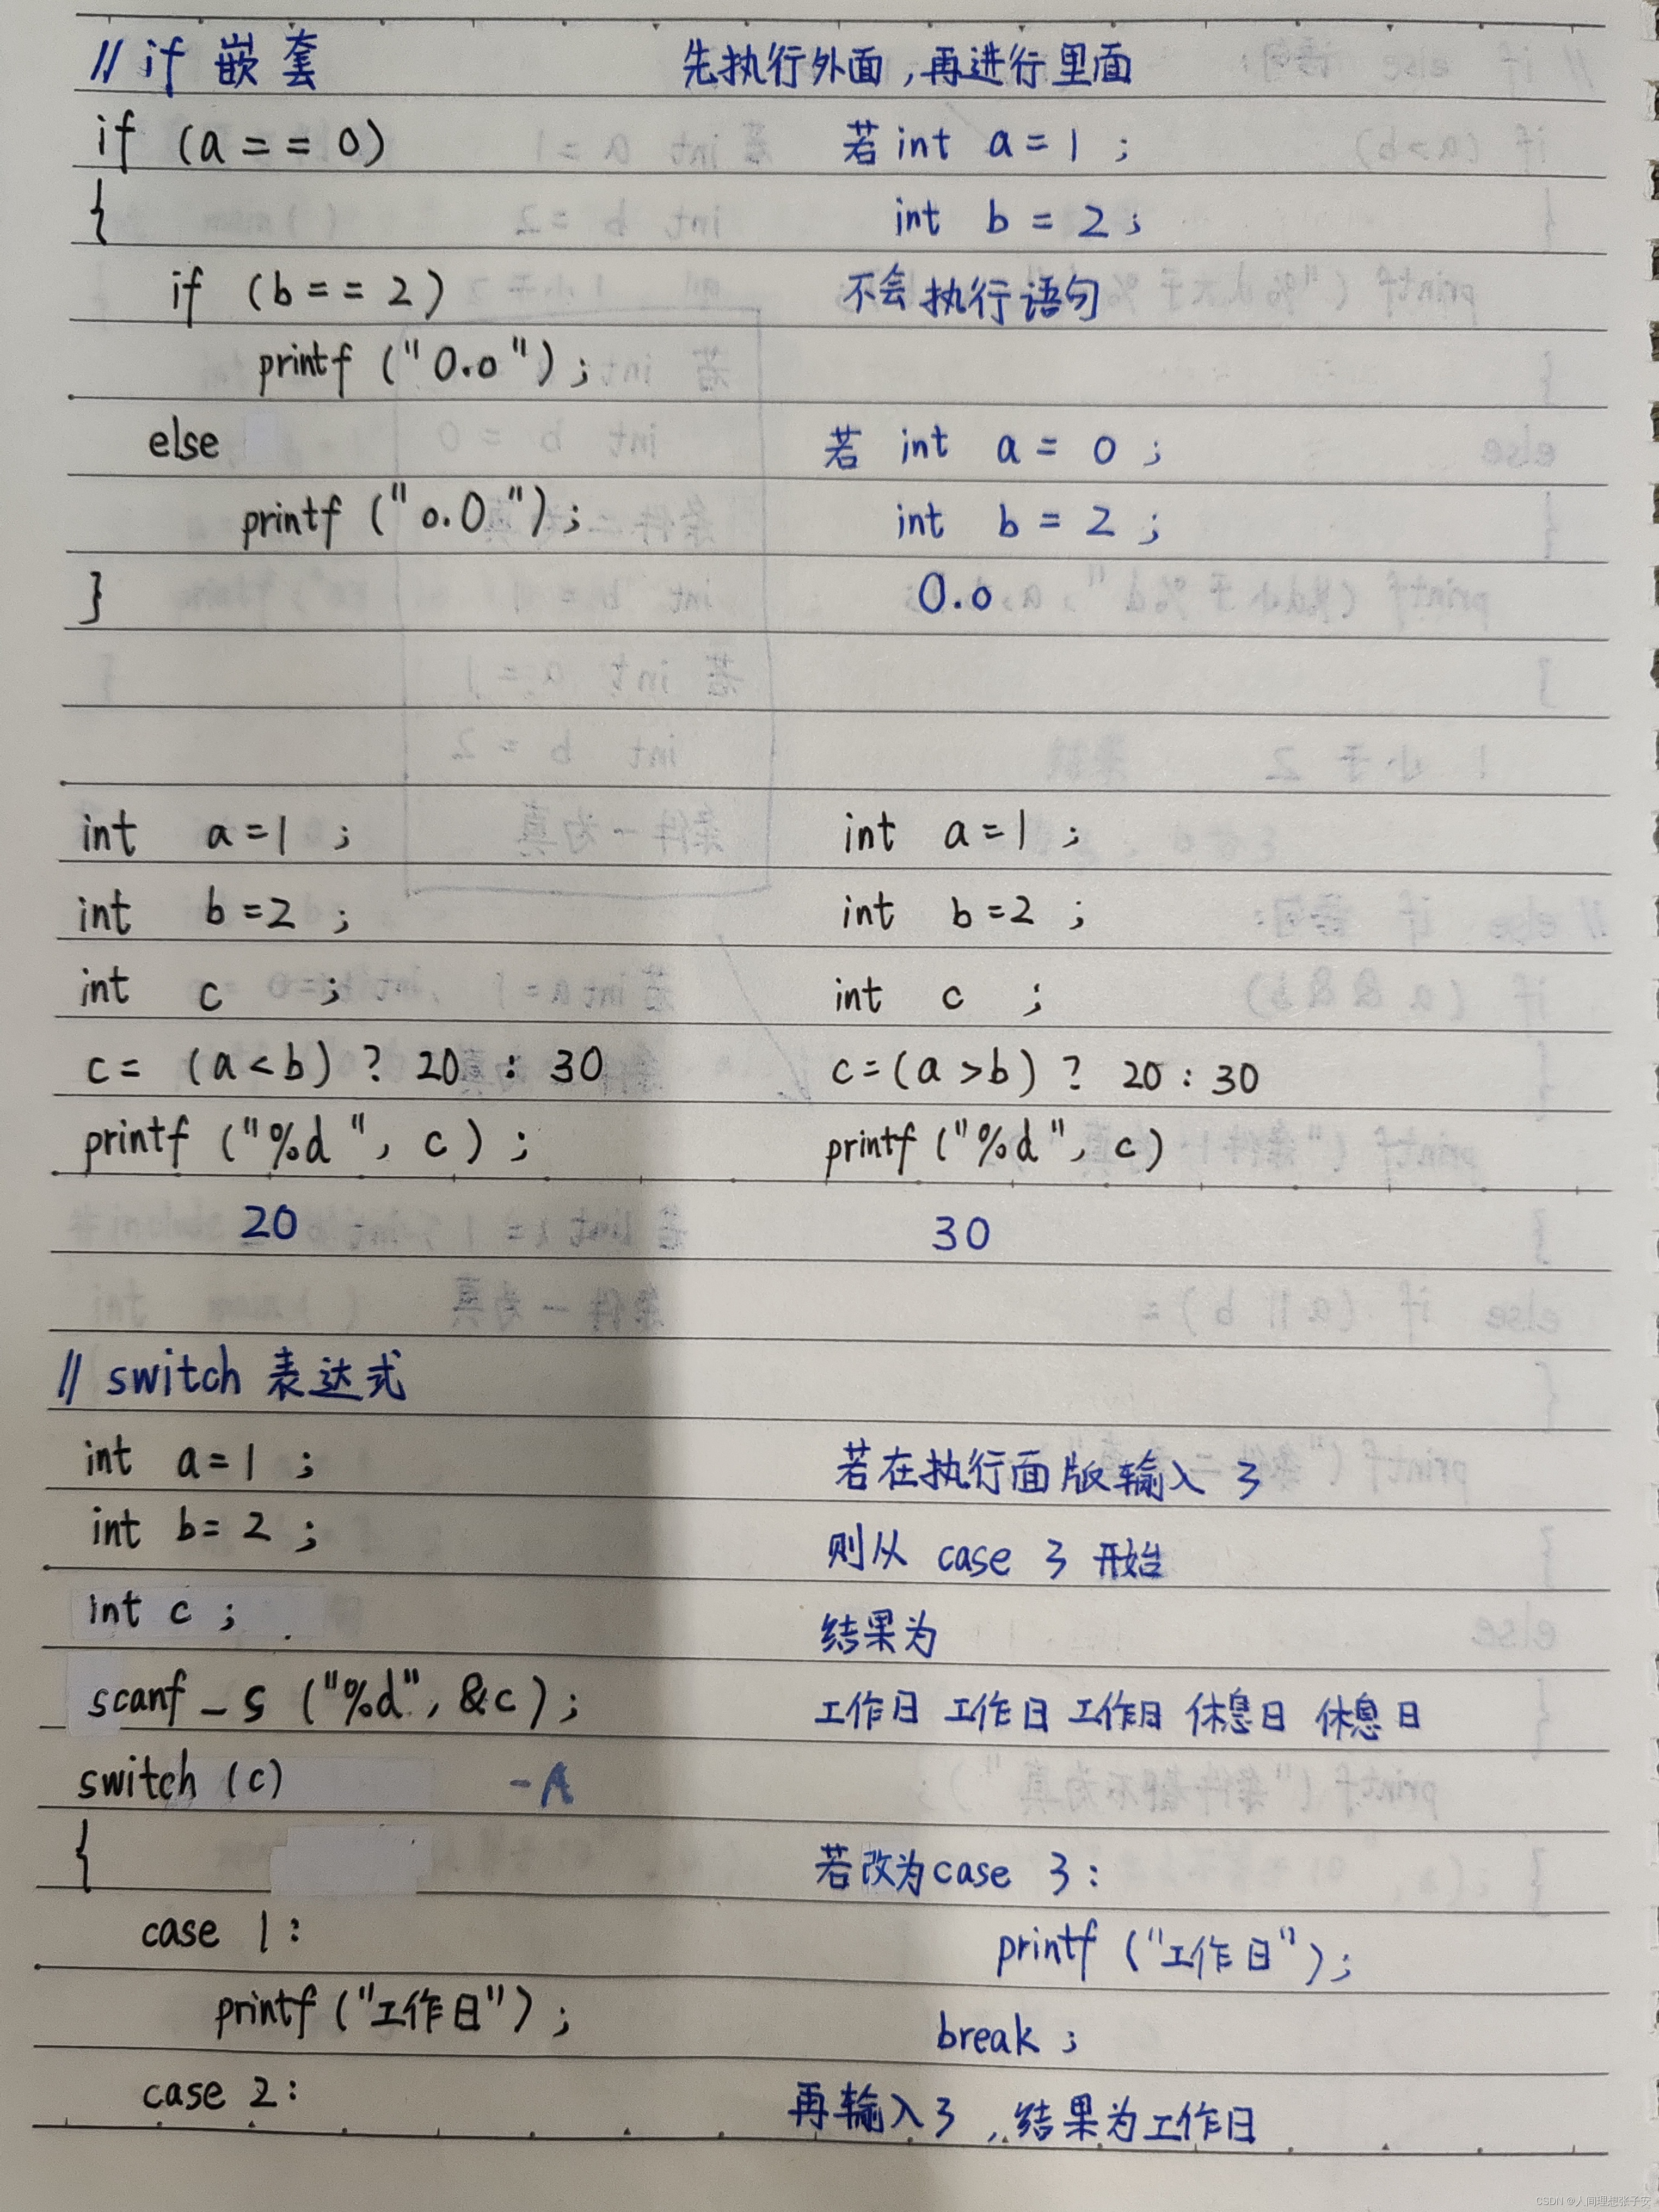 // if 嵌套 先执行外面,再进行里面
if (a == 0) 若 int a = 1 ;
{ int b = 2 ;
if (b == 2) 不会执行语句
printf ("0.o") ;
else 若 int a = 0 ;
printf ("o.0") ; int b = 2 ;
} 0.o
int a=1 ; int a=1 ;
int b=2 ; int b=2 ;
int c ; int c ;
c= (a<b) ? 20 : 30 c=(a>b) ? 20 : 30
printf ("%d", c) ; printf ("%d", c)
20 30
// switch 表达式
int a=1 ; 若在执行面版输入 3
int b= 2 ; 则从 case 3 开始
int c ; 结果为
scanf_s ("%d", &c) ; 工作日 工作日 工作日 休息日 休息日
switch (c) -A
{ 若改为case 3 :
case 1 : printf ("工作日") ;
printf ("工作日") ; break ;
case 2 : 再输入3 ,结果为工作日
CSDN @人间理想张子安